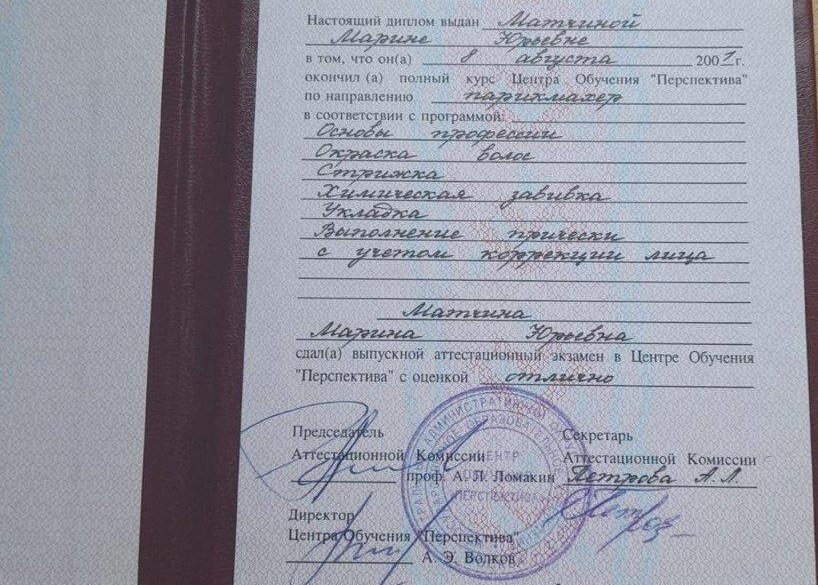 Настоящий диплом выдан Матчиной
Марине Юрьевне
в том, что он(а) 8 августа 2007 г.
окончил (а) полный курс Центра Обучения "Перспектива"
по направлению парикмахер
в соответствии с программой:
Основы профессии
Окраска волос
Стрижка
Химическая завивка
Укладка
Выполнение прически
с учетом коррекции лица
Матчина
Марина Юрьевна
сдал(а) выпускной аттестационный экзамен в Центре Обучения
"Перспектива" с оценкой отлично
Председатель
Аттестационной Комиссии
проф. А. Л. Ломакин
Секретарь
Аттестационной Комиссии
Петрова А. Л.
Директор
Центра Обучения "Перспектива"
А. Э. Волков
ЦЕНТР
ПЕРСПЕКТИВА